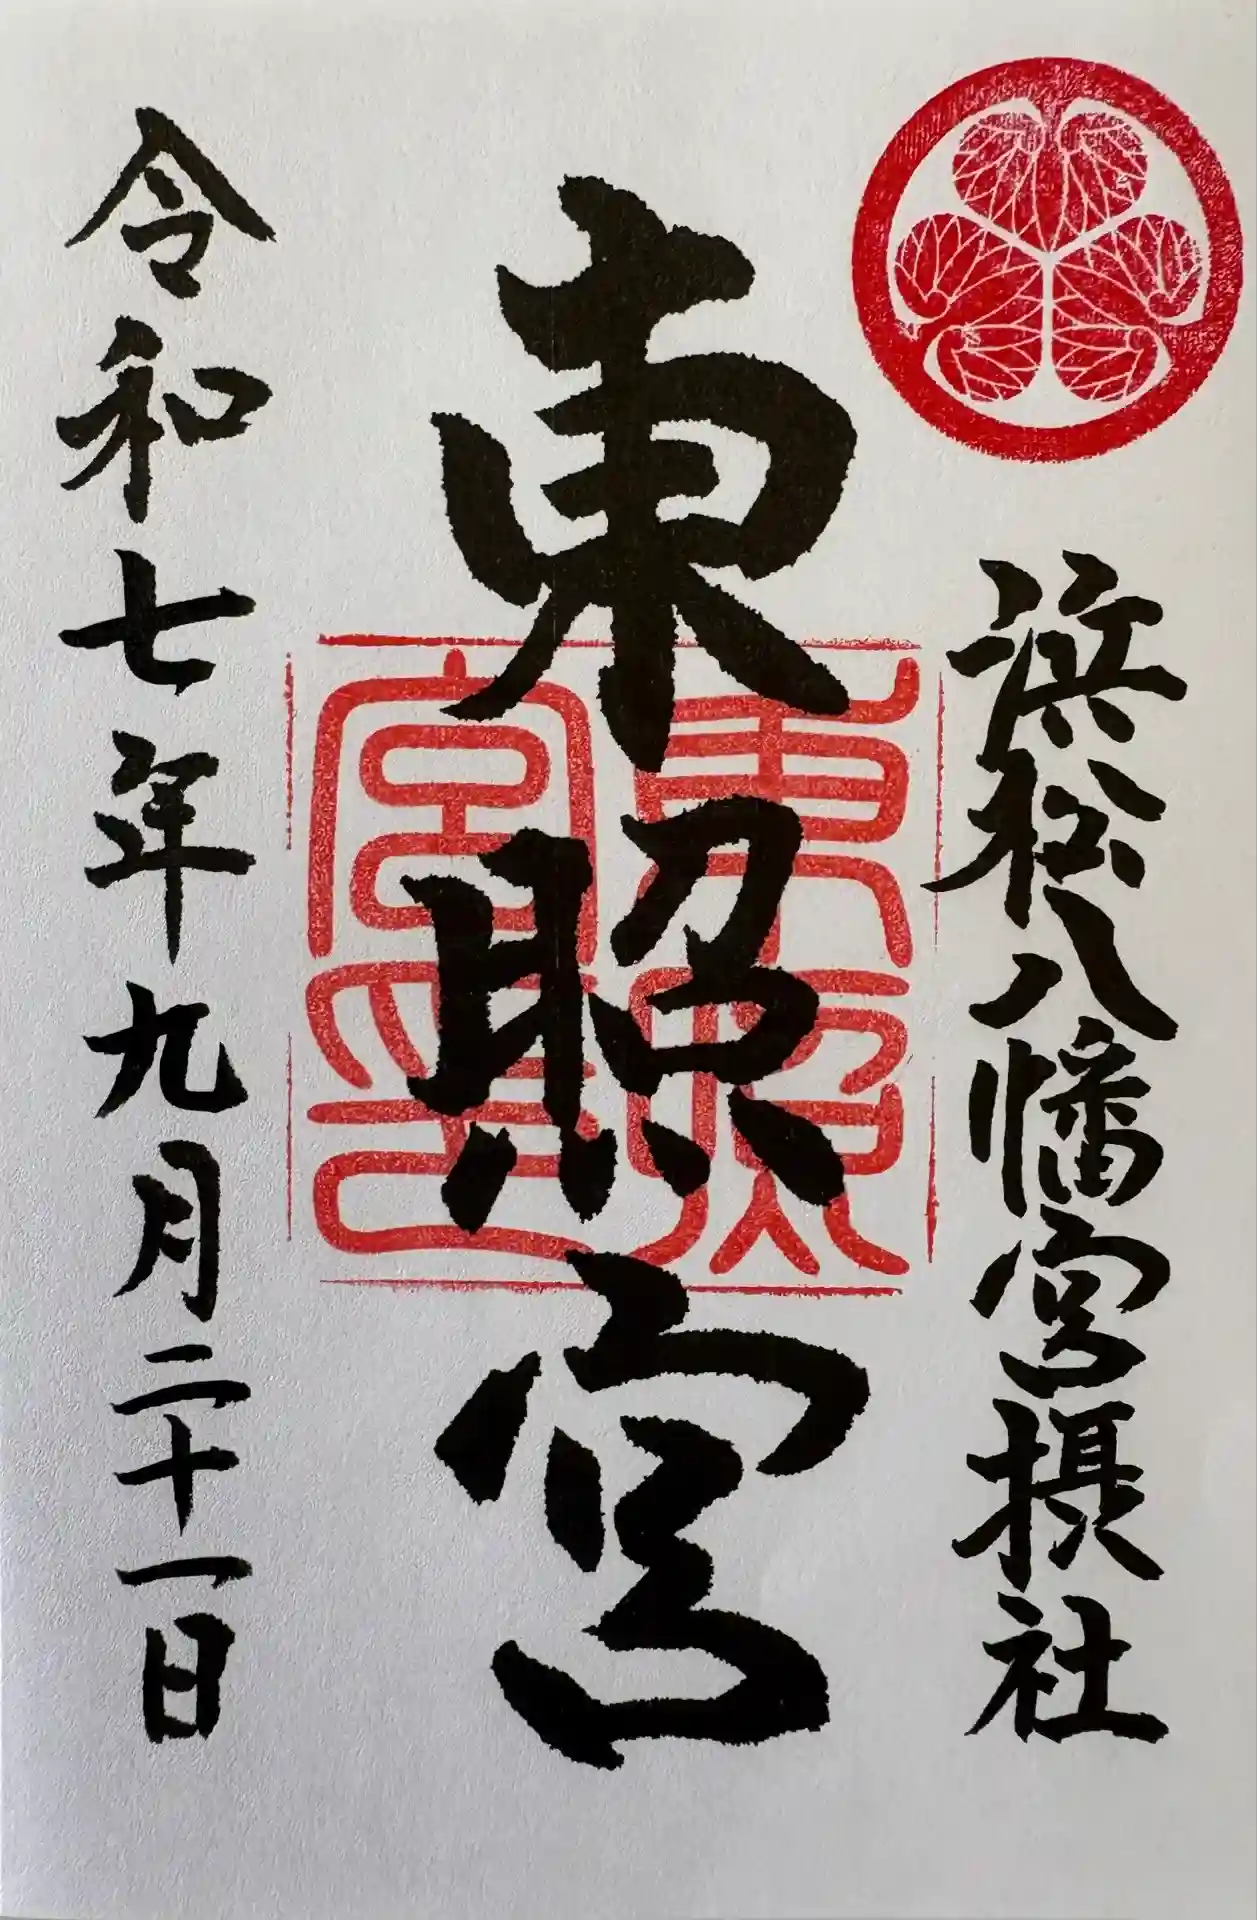 浜松八幡宮摂社
東照宮
東照宮印
令和七年九月二十一日